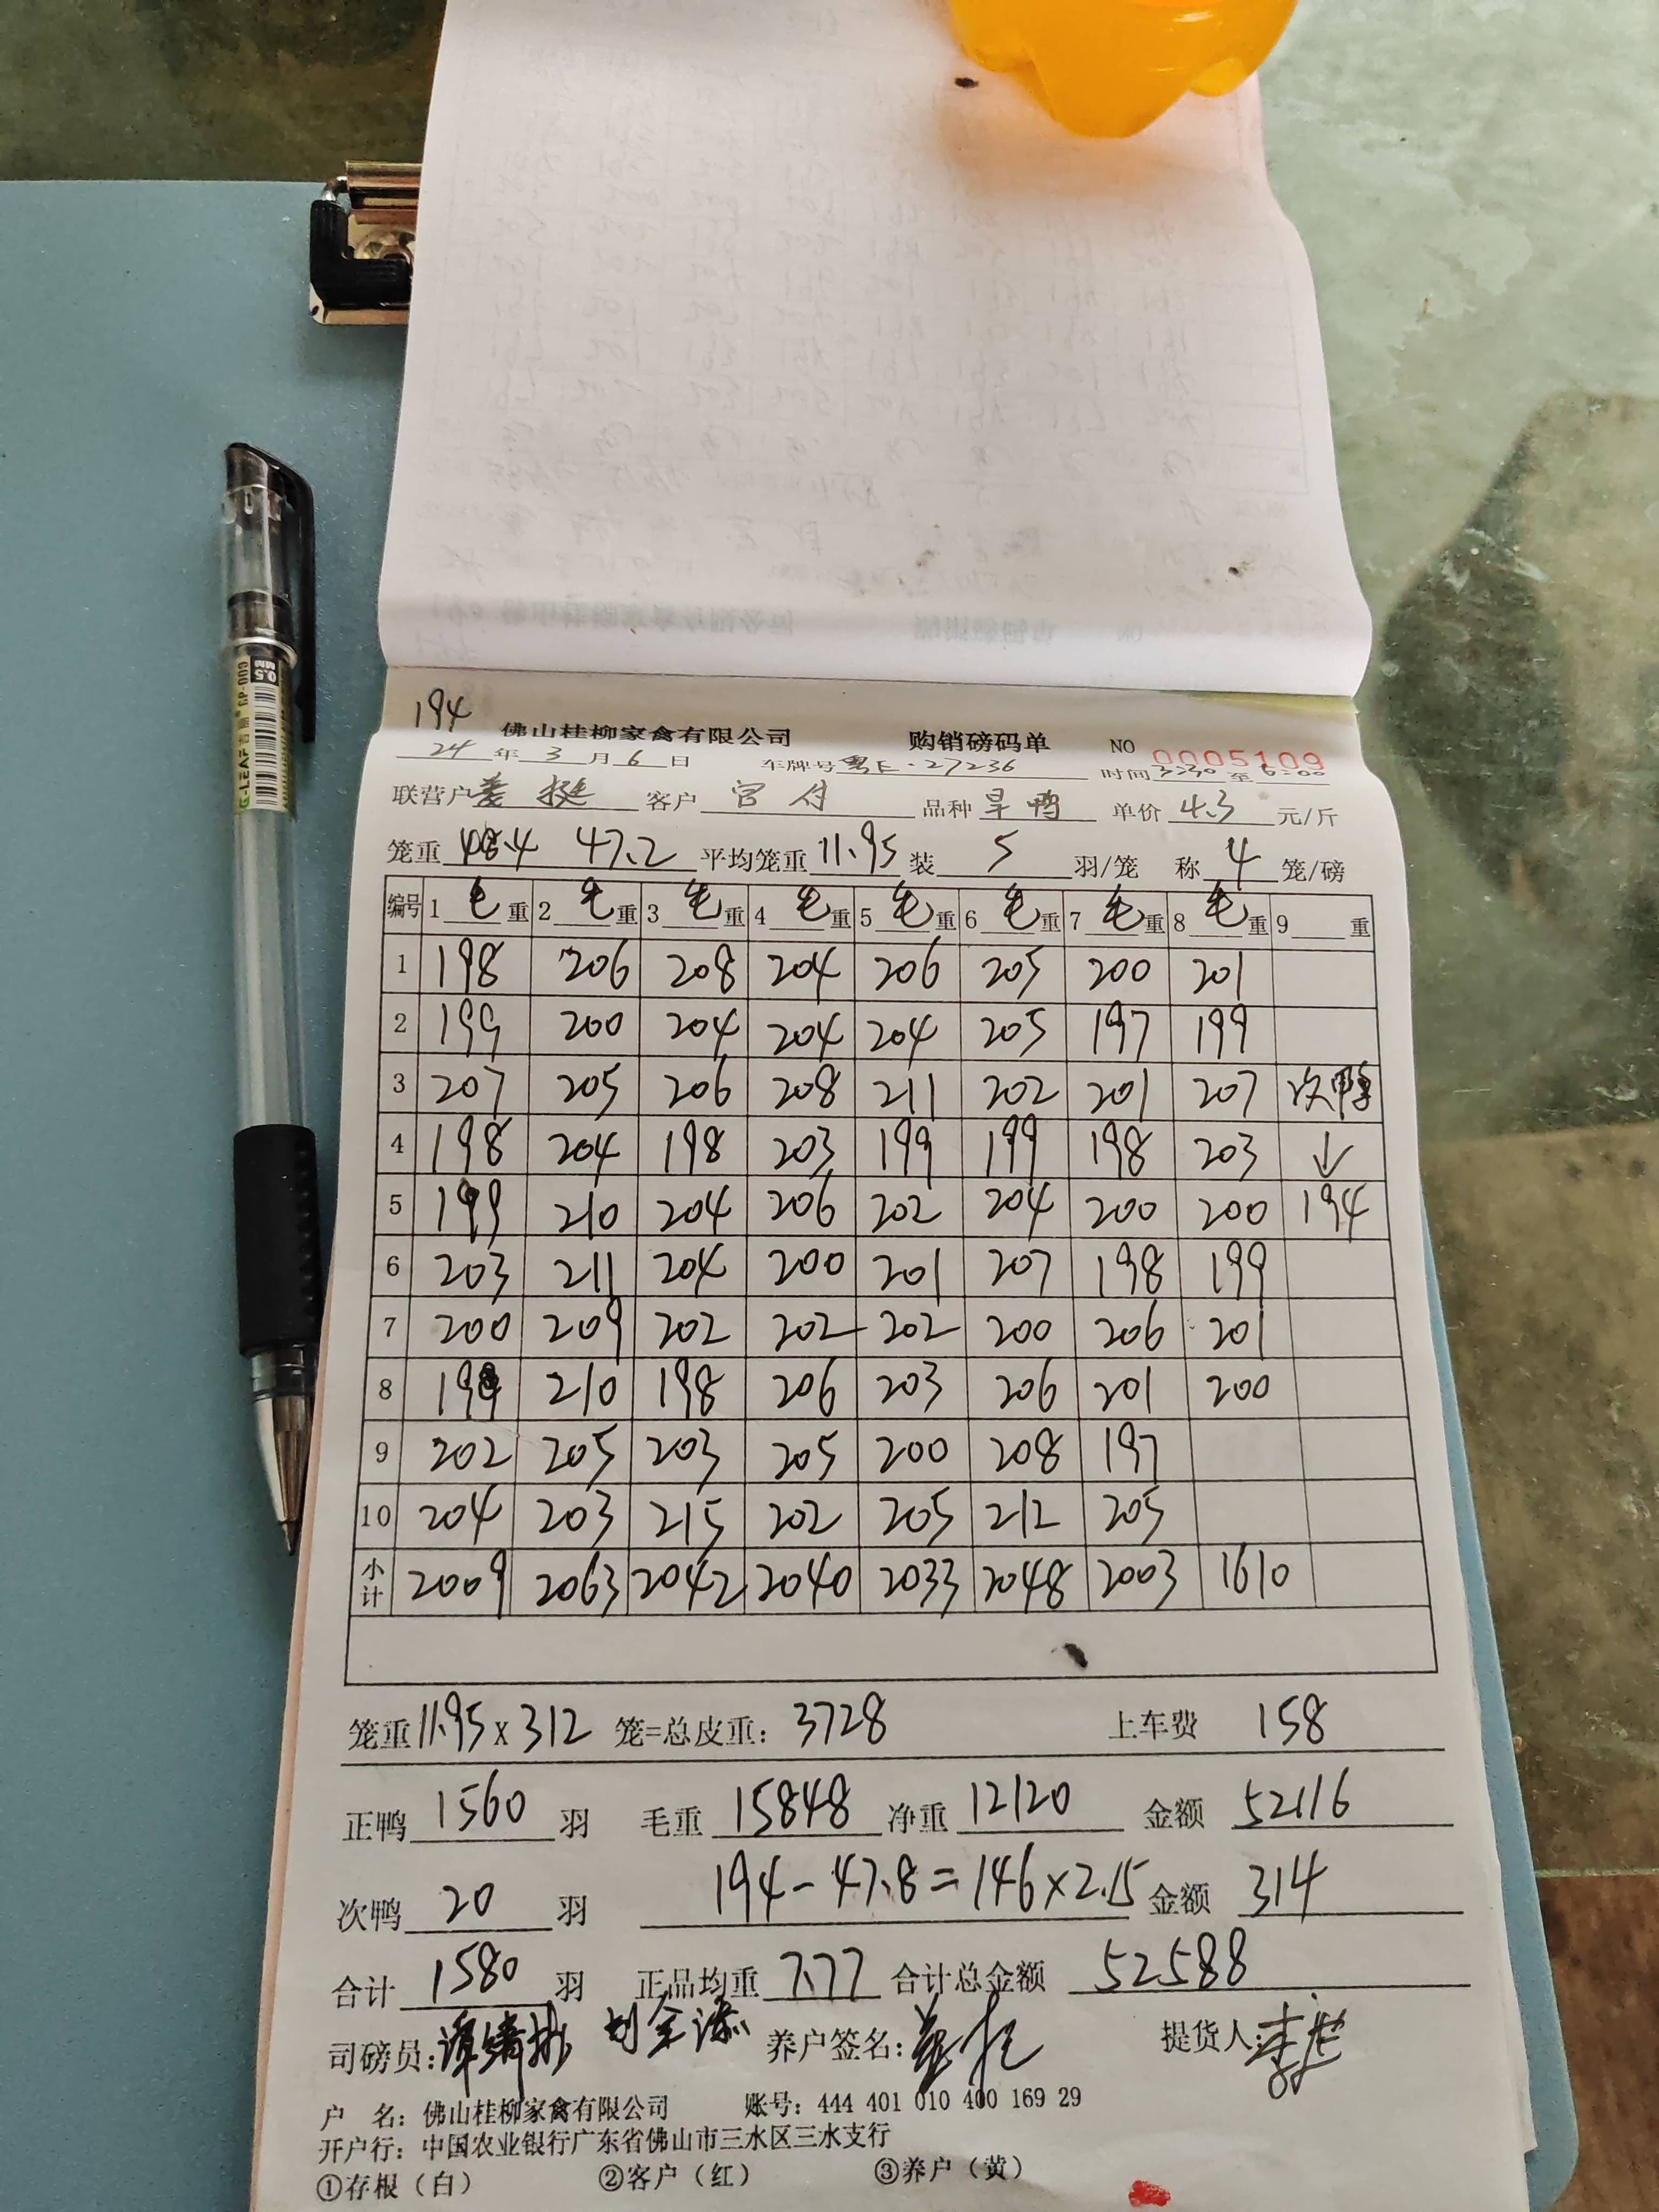 194
佛山桂柳家禽有限公司 购销磅码单 NO 0005109
24年3月6日 车牌号粤E·27236 时间3:30至6:00
联营户 挺 客户 宫付 品种 旱鸭 单价 4.3 元/斤
笼重 48.4 47.2 平均笼重 11.95 装 5 羽/笼 称 4 笼/磅
编号 1 毛 重 2 毛 重 3 毛 重 4 毛 重 5 毛 重 6 毛 重 7 毛 重 8 毛 重 9 重
1 198 206 208 204 206 205 200 201
2 199 200 204 204 204 205 197 199
3 207 205 206 208 211 202 201 207 次鸭
4 198 204 198 203 199 199 198 203 ↓
5 199 210 204 206 202 204 200 200 194
6 203 211 204 200 201 207 198 199
7 200 209 202 202 202 200 206 201
8 199 210 198 206 203 206 201 200
9 202 205 203 205 200 208 197
10 204 203 215 202 205 212 205
小计 2009 2063 2042 2040 2033 2048 2003 1610
笼重 11.95 x 312 笼=总皮重: 3728 上车费 158
正鸭 1560 羽 毛重 15848 净重 12120 金额 52116
次鸭 20 羽 194-47.8=146×2.15 金额 314
合计 1580 羽 正品均重 7.77 合计总金额 52588
司磅员: 养户签名: 提货人:
户 名: 佛山桂柳家禽有限公司 账号: 444 401 010 400 169 29
开户行: 中国农业银行广东省佛山市三水区三水支行
①存根(白) ②客户(红) ③养户(黄)
G-LEAF 吉丽 GP-009 0.5 MM